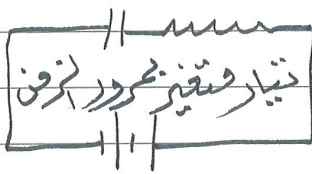 تيار متغير بمرور الزمن